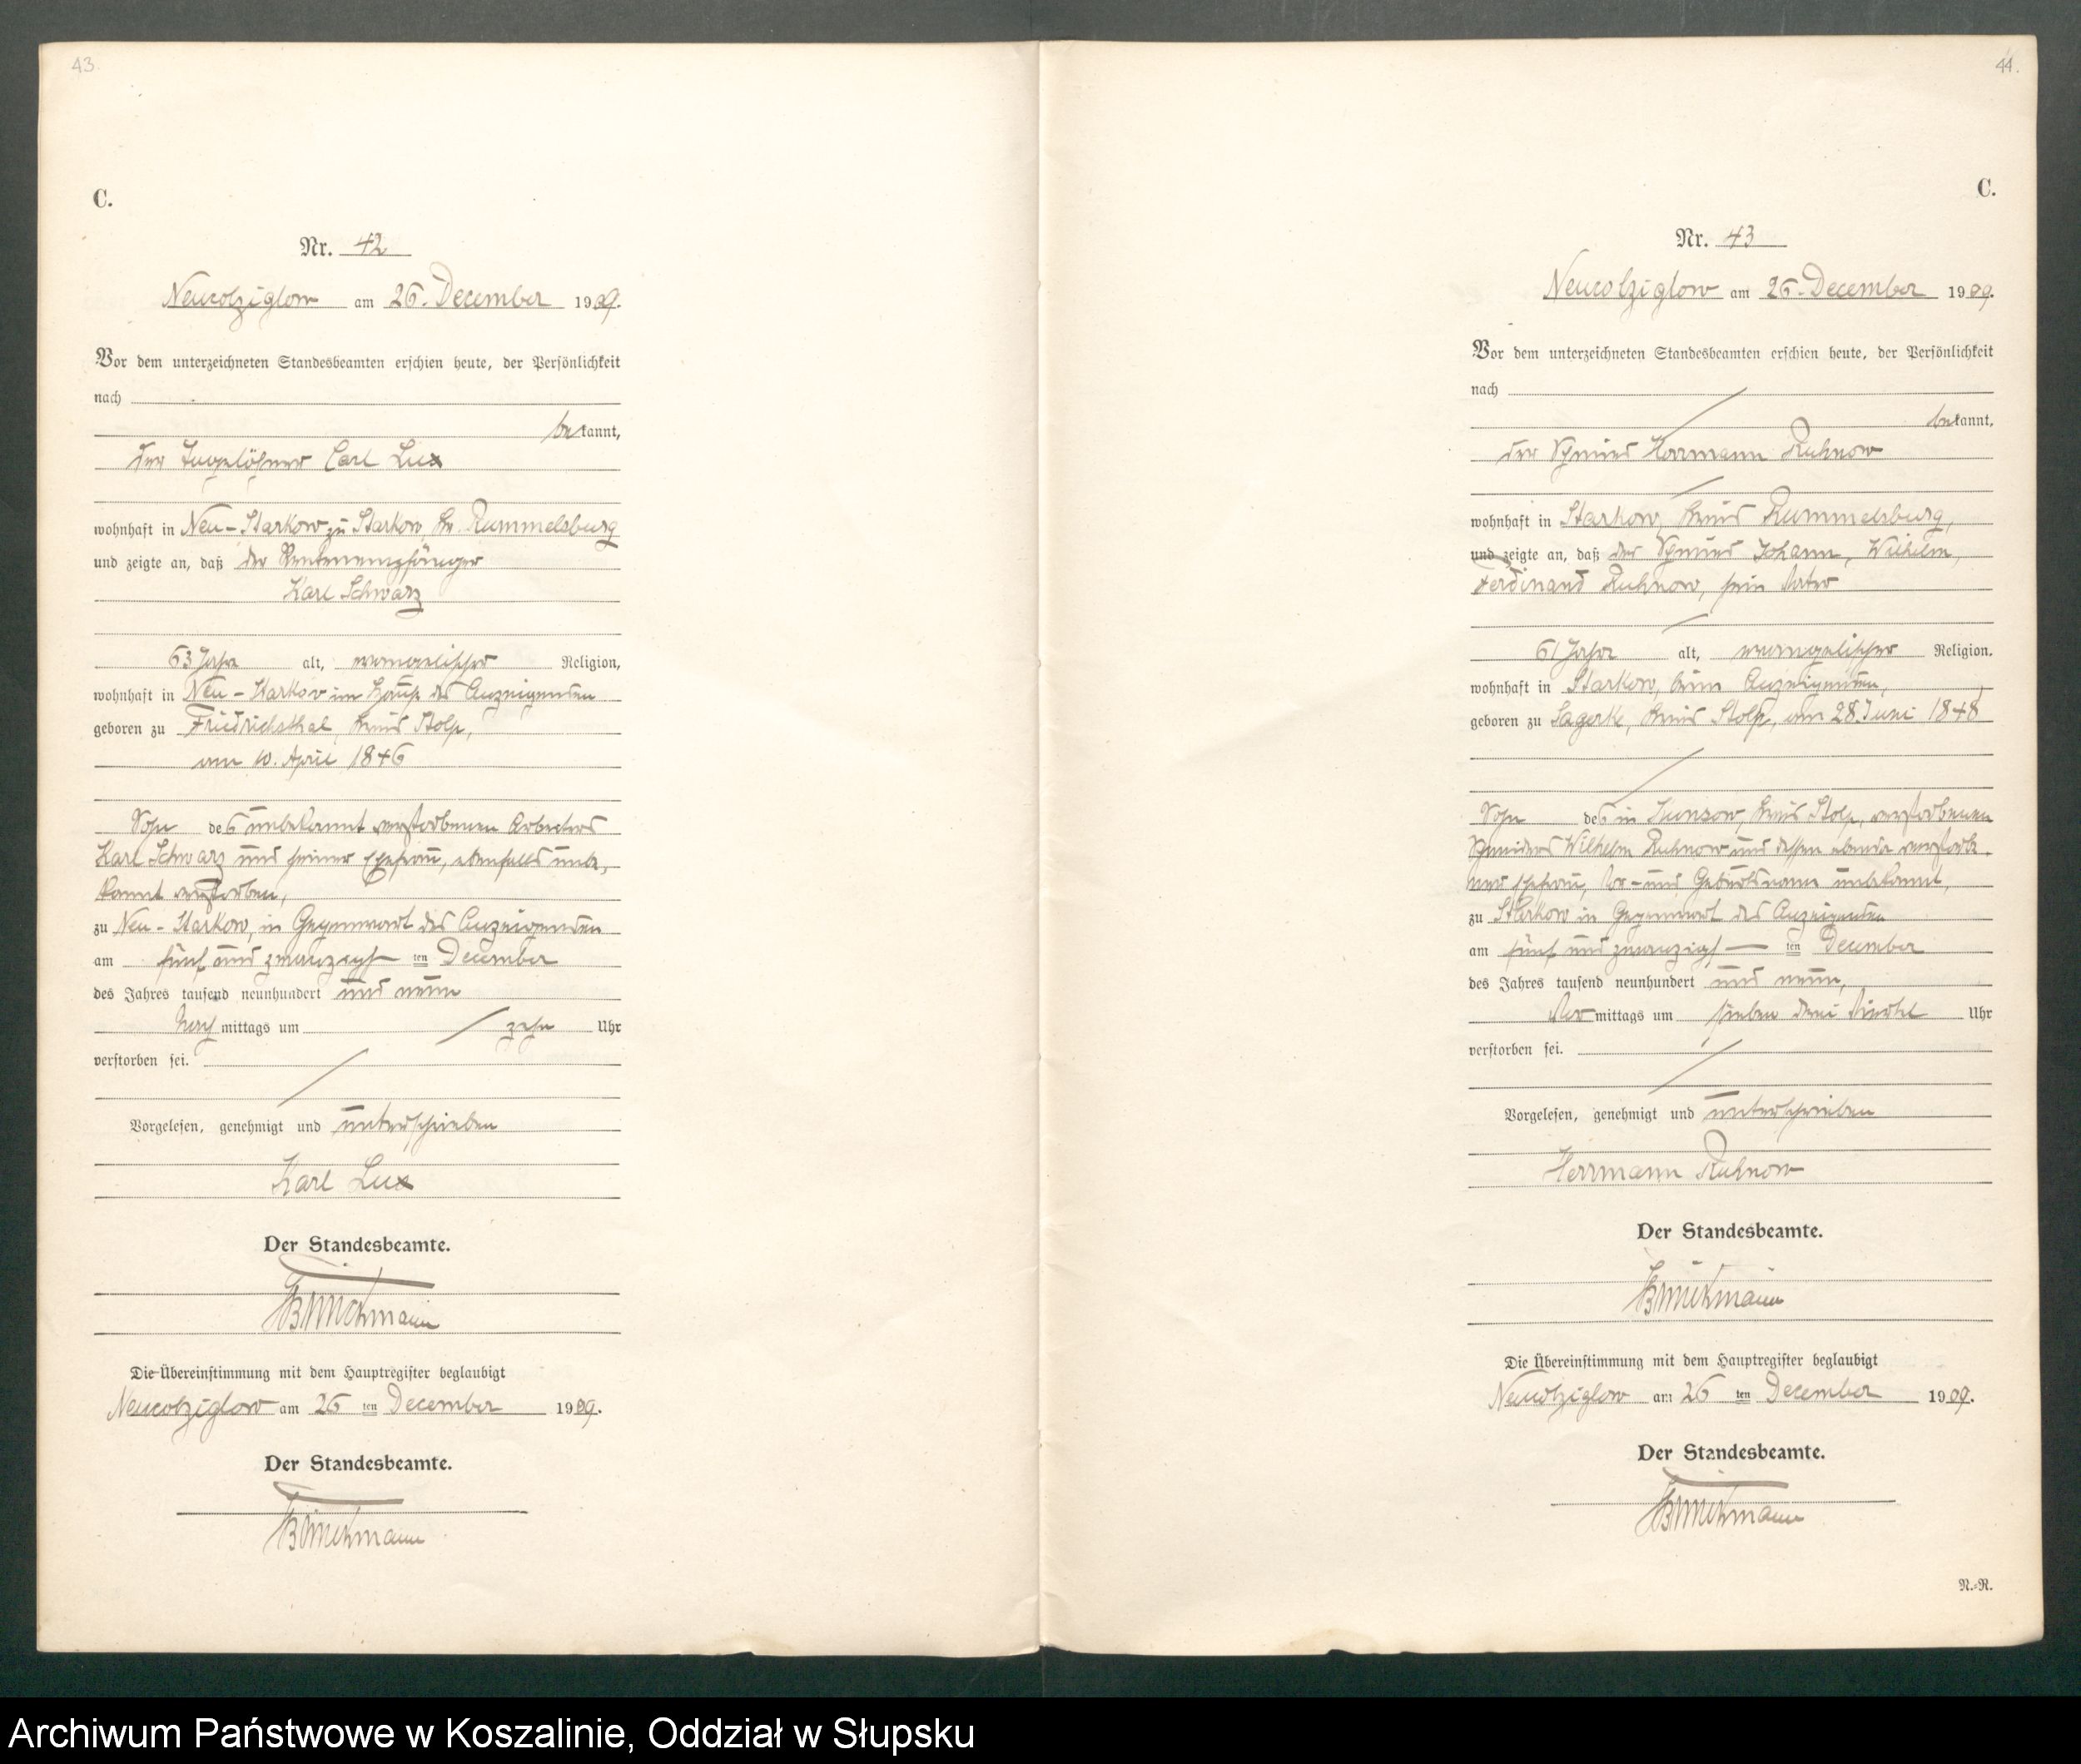 43.
C.
Nr. 42
Neukolziglow am 26. December 1909.
Vor dem unterzeichneten Standesbeamten erschien heute, der Persönlichkeit
nach
bekannt,
der Tagelöhner Carl Lux
wohnhaft in Neu-Starkow zu Starkow, Kr. Rummelsburg
und zeigte an, daß der Rentenempfänger
Karl Schwarz
63 Jahre alt, evangelischer Religion,
wohnhaft in Neu-Starkow im Hause des Anzeigenden
geboren zu Friedrichsthal, Kreis Stolp,
am 10. April 1846
Sohn des unbekannt verstorbenen Arbeiters
Karl Schwarz und seiner Ehefrau, ebenfalls unbe-
kannt verstorben,
zu Neu-Starkow, in Gegenwart des Anzeigenden
am fünf und zwanzigsten December
des Jahres tausend neunhundert und neun
Nachmittags um zehn Uhr
verstorben sei.
Vorgelesen, genehmigt und unterschrieben
Karl Lux
Der Standesbeamte.
Die Übereinstimmung mit dem Hauptregister beglaubigt
Neukolziglow am 26 ten December 1909.
Der Standesbeamte.
44.
C.
Nr. 43
Neukolziglow am 26. December 1909.
Vor dem unterzeichneten Standesbeamten erschien heute, der Persönlichkeit
nach
bekannt,
der Schmied Herrmann Ruhnow
wohnhaft in Starkow, Kreis Rummelsburg,
und zeigte an, daß der Schmied Johann, Wilhelm,
Ferdinand Ruhnow, sein Vater
61 Jahre alt, evangelischer Religion,
wohnhaft in Starkow, beim Anzeigenden,
geboren zu Lagerk, Kreis Stolp, am 28. Juni 1848
Sohn des in Kunsow, Kreis Stolp, verstorbenen
Wilhelm Ruhnow und dessen ebenda verstorbe-
nen Ehefrau, Vor- und Geburtsname unbekannt,
zu Starkow in Gegenwart des Anzeigenden
am fünf und zwanzigsten December
des Jahres tausend neunhundert und neun,
Vormittags um sieben drei Viertel Uhr
verstorben sei.
Vorgelesen, genehmigt und unterschrieben
Herrmann Ruhnow
Der Standesbeamte.
Die Übereinstimmung mit dem Hauptregister beglaubigt
Neukolziglow am 26 ten December 1909.
Der Standesbeamte.
N.=N.
Archiwum Państwowe w Koszalinie, Oddział w Słupsku